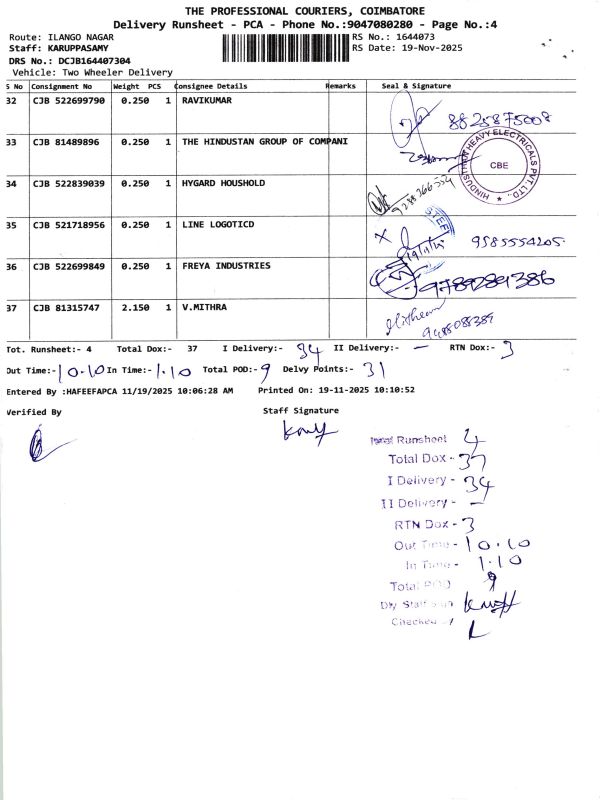 THE PROFESSIONAL COURIERS, COIMBATORE
Delivery Runsheet - PCA - Phone No.:9047080280 - Page No.:4
Route: ILANGO NAGAR RS No.: 1644073
Staff: KARUPPASAMY RS Date: 19-Nov-2025
DRS No.: DCJB164407304
Vehicle: Two Wheeler Delivery
S No Consignment No Weight PCS Consignee Details Remarks Seal & Signature
32 CJB 522699790 0.250 1 RAVIKUMAR 8825875008
33 CJB 81489896 0.250 1 THE HINDUSTAN GROUP OF COMPANI
HINDUSTHAN HEAVY ELECTRICALS PVT. LTD.
CBE
34 CJB 522839039 0.250 1 HYGARD HOUSHOLD
35 CJB 521718956 0.250 1 LINE LOGOTICD 9585554205
36 CJB 522699849 0.250 1 FREYA INDUSTRIES 9789289386
37 CJB 81315747 2.150 1 V.MITHRA
Tot. Runsheet:- 4 Total Dox:- 37 I Delivery:- 34 II Delivery:- — RTN Dox:- 3
Out Time:- 10.10 In Time:- 1.10 Total POD:- 9 Delvy Points:- 31
Entered By :HAFEEFAPCA 11/19/2025 10:06:28 AM Printed On: 19-11-2025 10:10:52
Verified By Staff Signature
Runsheet 4
Total Dox - 37
I Delivery - 34
II Delivery - —
RTN Dox - 3
Out Time - 10.10
In Time - 1.10
Total POD 9
Dly Staff
Checked